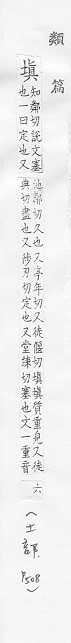 類篇
塡
知鄰切說文塞
也一曰定也又
池鄰切久也又亭年切又徒偃切塡塡質重皃又徒
典切盡也又陟刃切定也又堂練切塞也文一重音
六
(土部 P508)